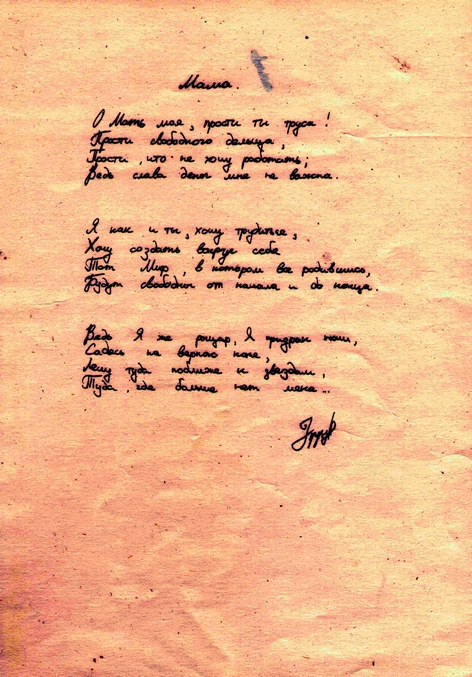 Мама.
О Мать моя, прости ты труса!
Прости свободного
Прости, что не хочу работать;
Ведь слава денег мне не важна.
Я как и ты, хочу трудиться,
Хочу создать вокруг себя
Тот Мир, в котором все родившись,
Будут свободны от начала и до конца.
Ведь Я же рыцарь, Я призрак ночи,
Садясь на верного коня,
Лечу туда поближе к звездам,
Туда, где больше нет меня...